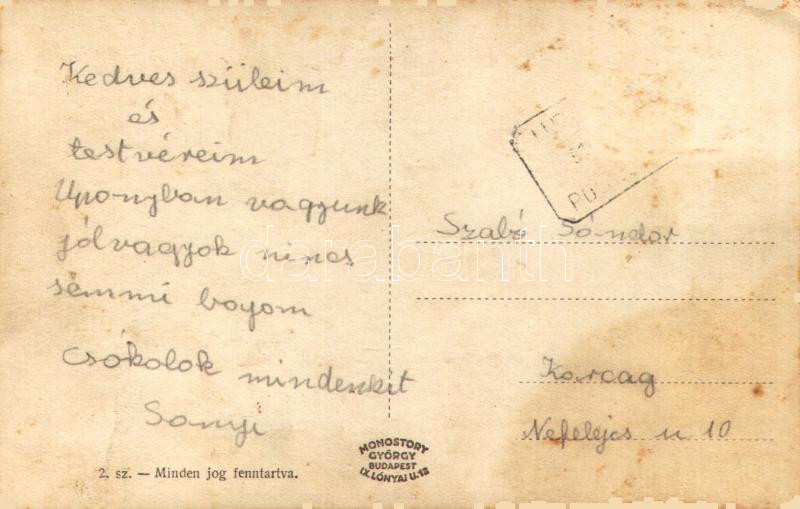 Kedves szüleim
és
testvéreim
Uponyban vagyunk
jól vagyok nincs
semmi bajom
Csókolok mindenkit
Sanyi
2. sz. — Minden jog fenntartva.
MONOSTORY
GYÖRGY
BUDAPEST
IX. LÓNYAI U. 18
PU
Szabó Sándor
Karcag
Nefelejcs u 10
darabanth